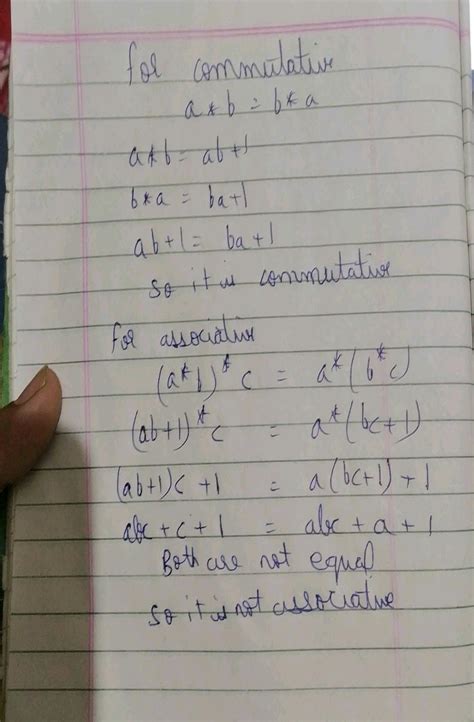 for commutative
a * b = b * a
a * b = ab + 1
b * a = ba + 1
ab + 1 = ba + 1
So it is commutative
for associative
(a * b) * c = a * (b * c)
(ab+1) * c = a * (bc+1)
(ab+1)c + 1 = a(bc+1) + 1
abc + c + 1 = abc + a + 1
Both are not equal
So it is not associative